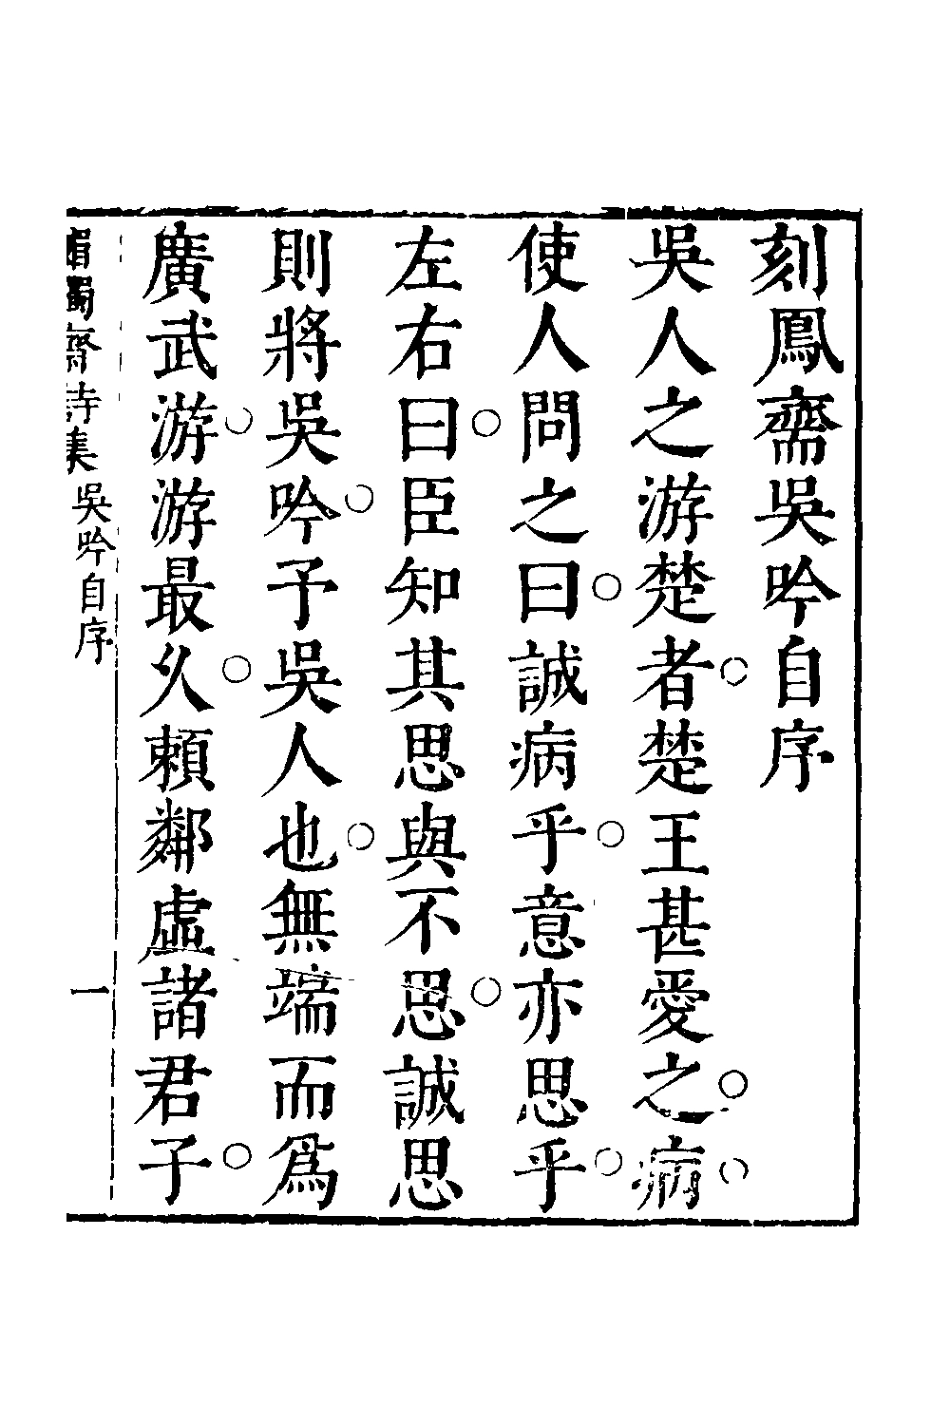 刻鳳齋吳吟自序
吳人之游楚者楚王甚愛之病
使人問之曰誠病乎意亦思乎
左右曰臣知其思與不思誠思
則將吳吟予吳人也無端而爲
廣武游游最久賴鄰虛諸君子
齋詩集 吳吟自序 一